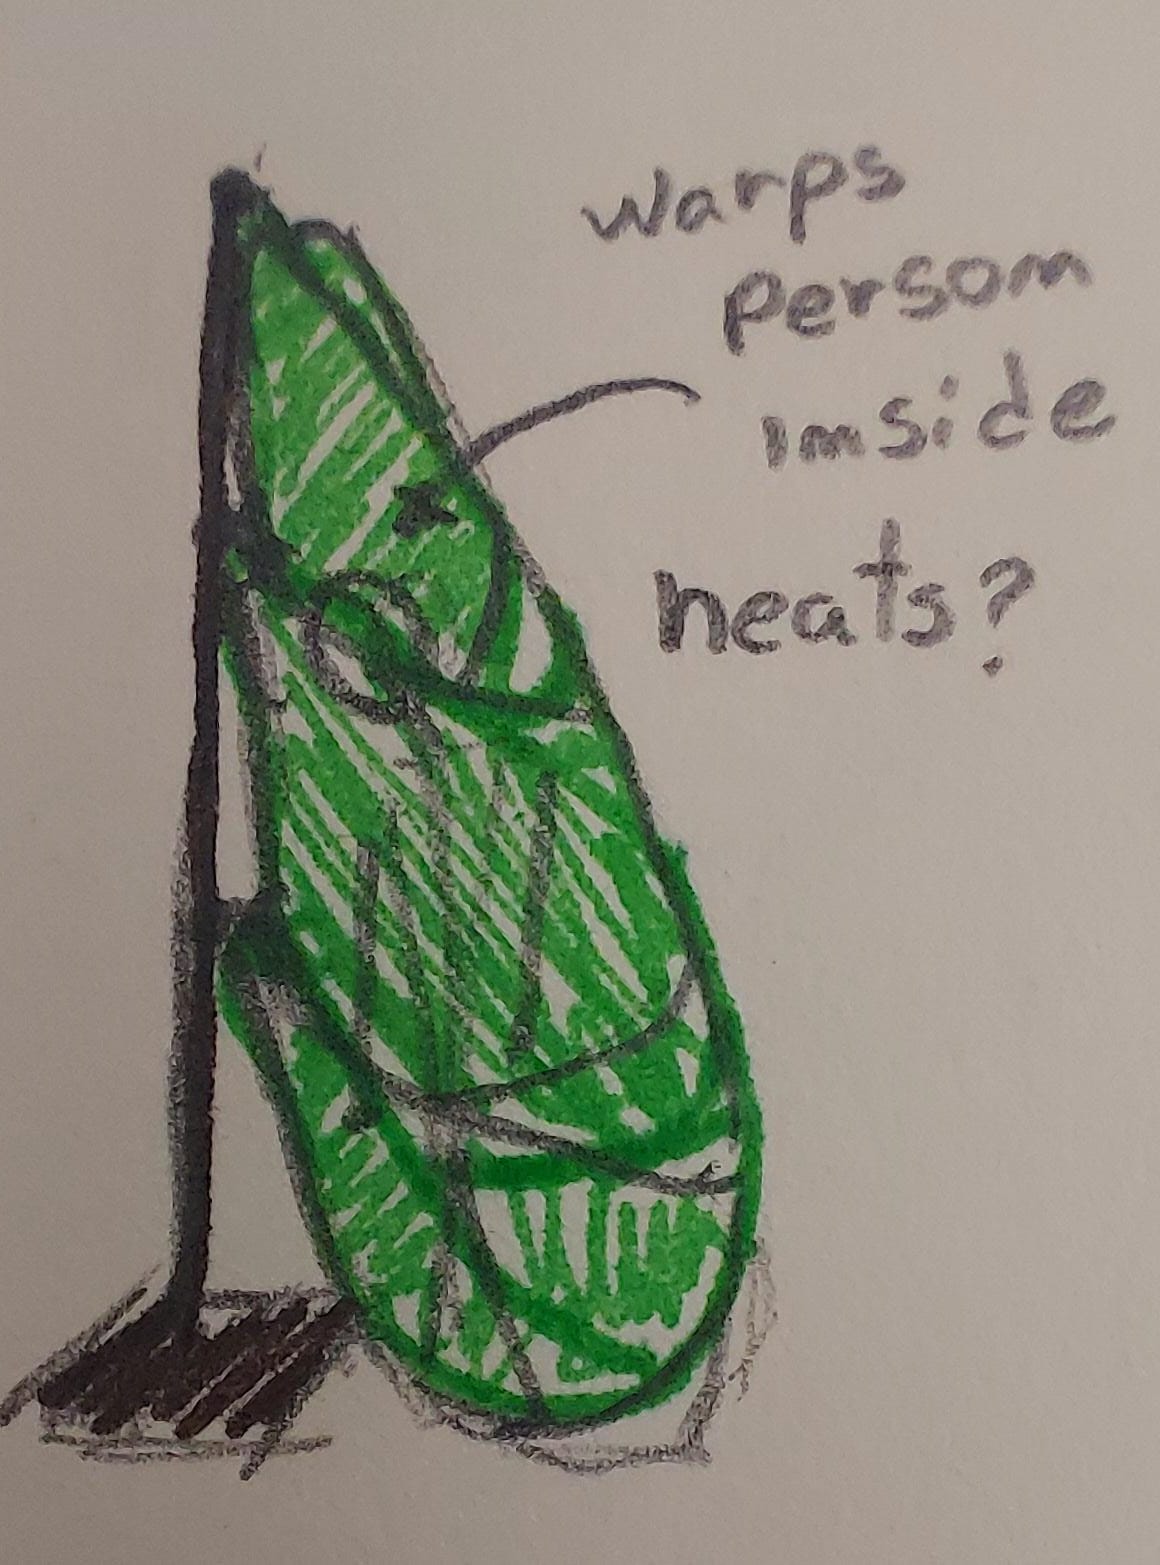 warps
persom
imside
heats?